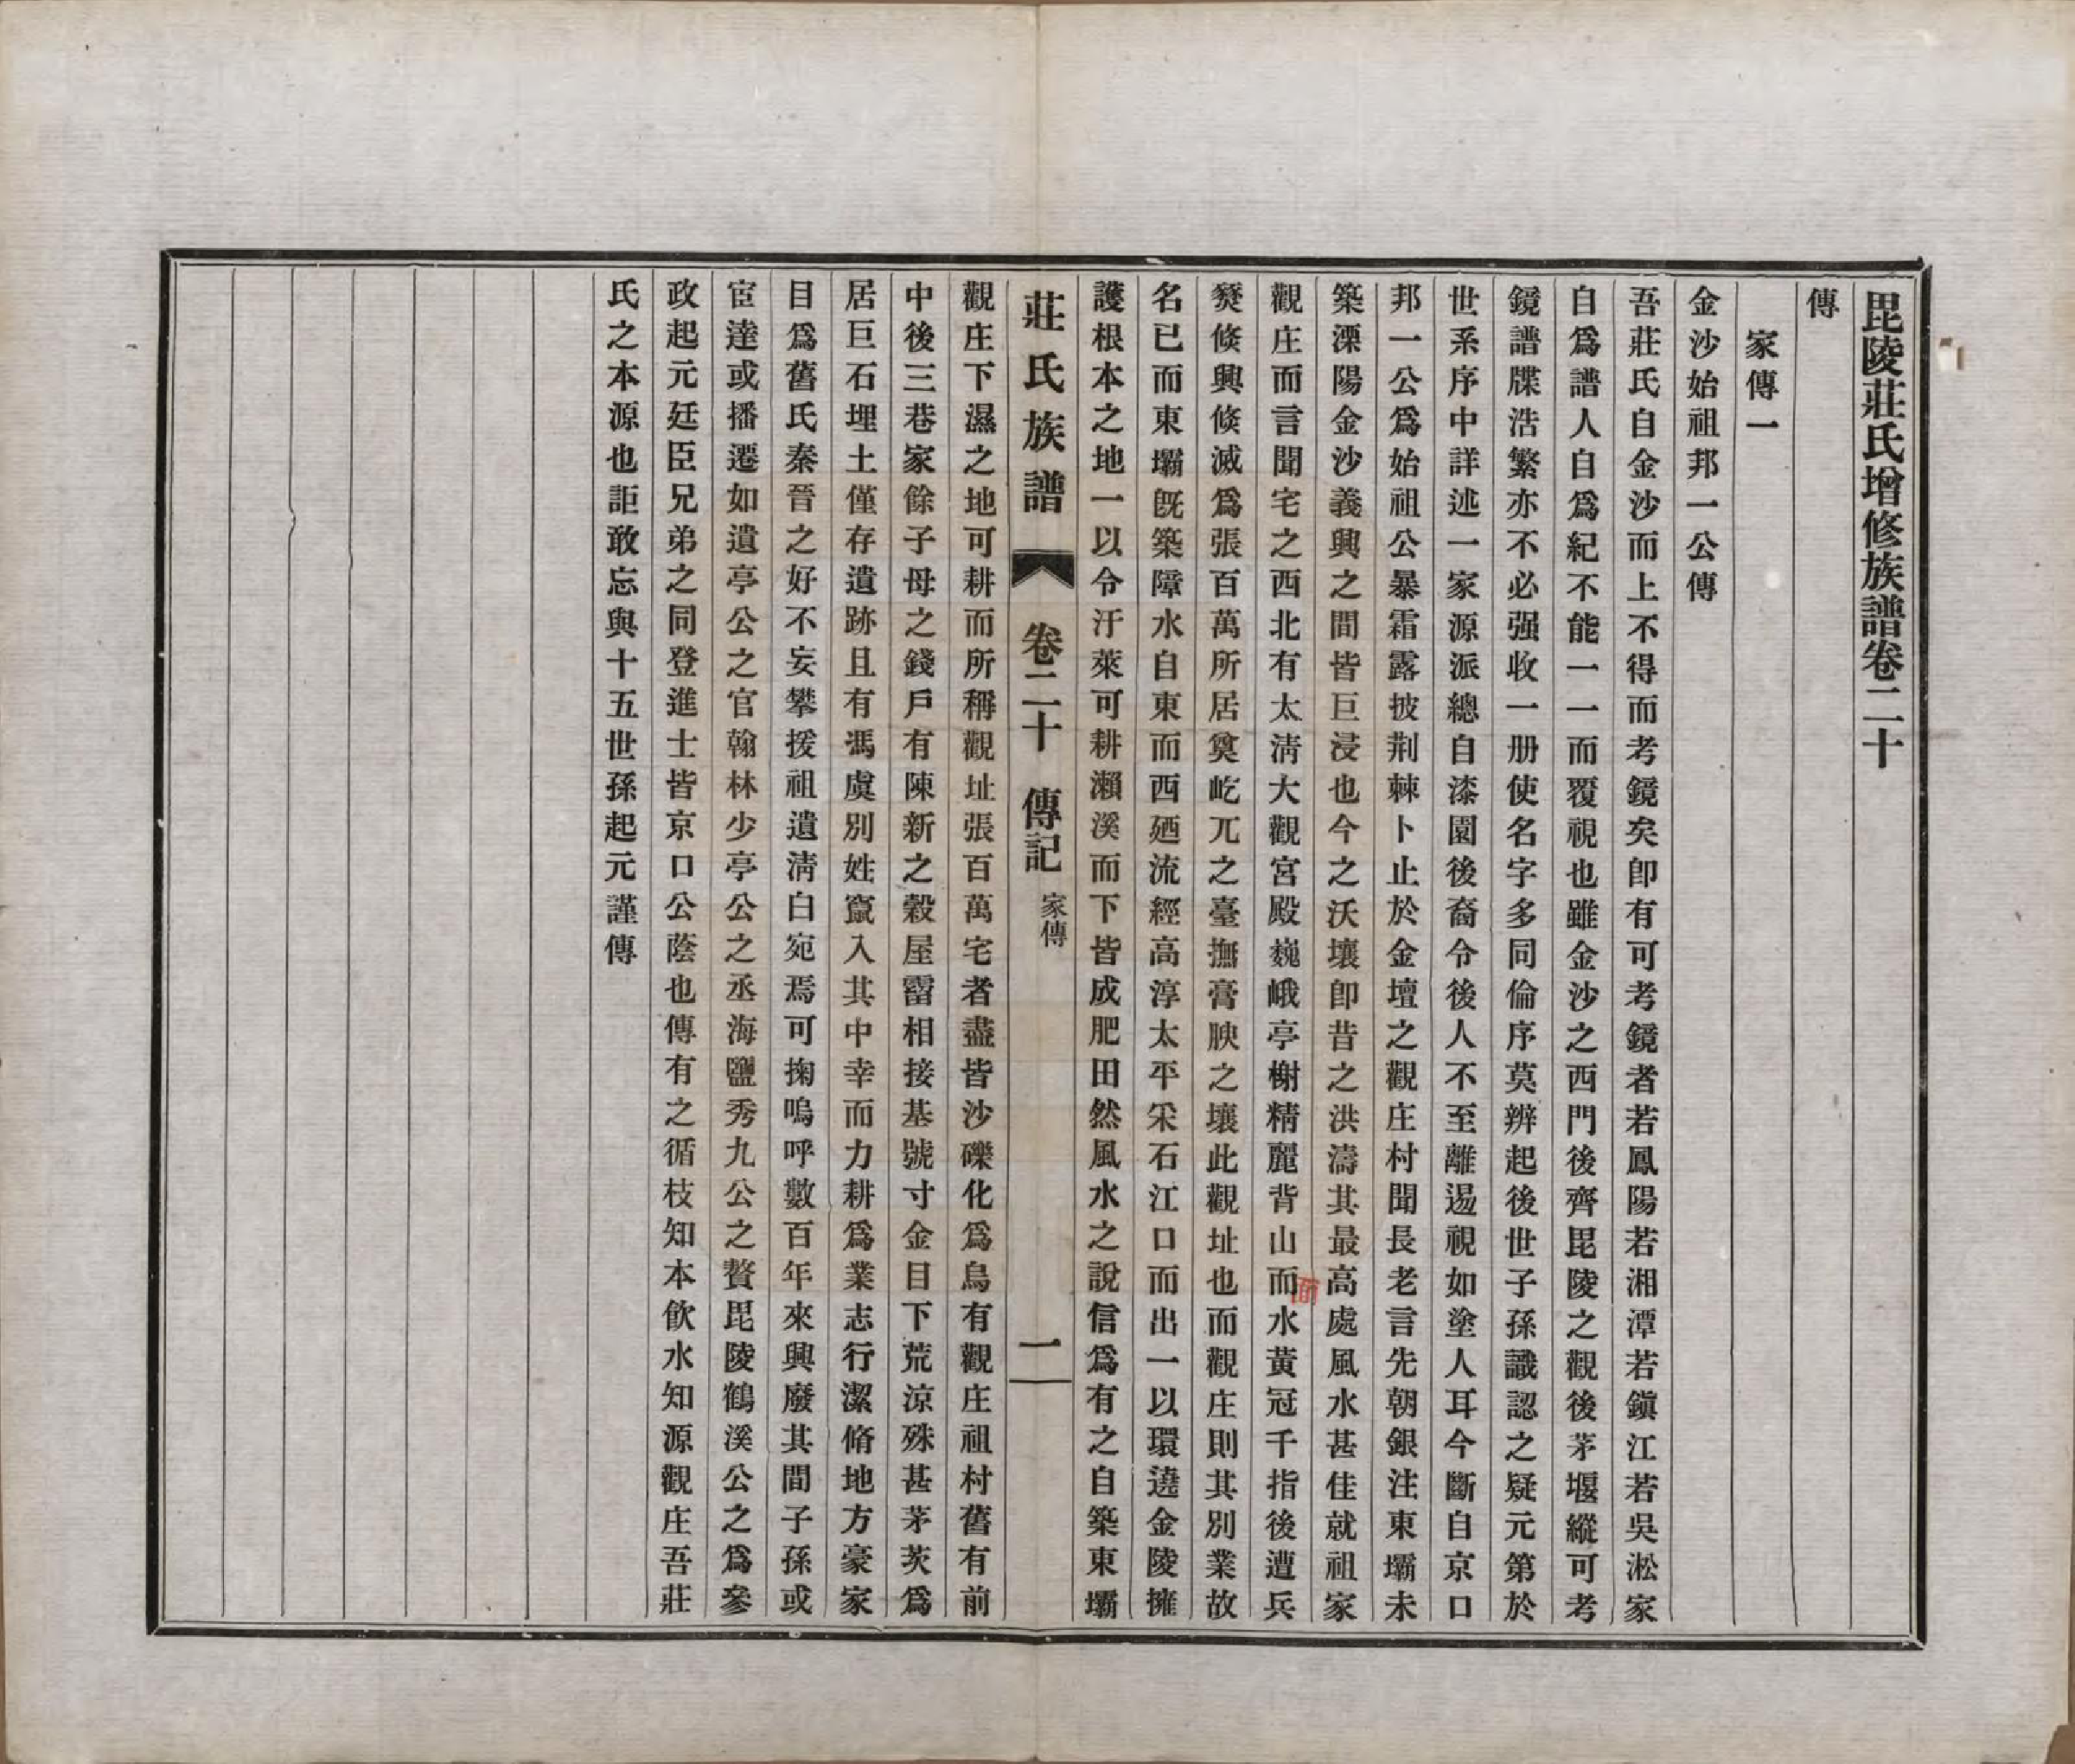 毘陵莊氏增修族譜卷二十
傳
家傳一
金沙始祖邦一公傳
吾莊氏自金沙而上不得而考鏡矣卽有可考鏡者若鳳陽若湘潭若鎭江若吳淞家
自爲譜人自爲紀不能一一而覆視也雖金沙之西門後齊毘陵之觀後茅堰縱可考
鏡譜牒浩繁亦不必强收一册使名字多同倫序莫辨起後世子孫識認之疑元第於
世系序中詳述一家源派總自漆園後裔令後人不至離逷視如塗人耳今斷自京口
邦一公爲始祖公暴霜露披荆棘卜止於金壇之觀庄村聞長老言先朝銀注東壩未
築溧陽金沙義興之間皆巨浸也今之沃壤卽昔之洪濤其最高處風水甚佳就祖家
觀庄而言聞宅之西北有太淸大觀宮殿巍峨亭榭精麗背山而面水黃冠千指後遭兵
燹倏興倏滅爲張百萬所居奠屹兀之臺撫膏腴之壤此觀址也而觀庄則其別業故
名已而東壩旣築障水自東而西廼流經高淳太平采石江口而出一以環遶金陵擁
護根本之地一以令汙萊可耕瀨溪而下皆成肥田然風水之說信爲有之自築東壩
莊氏族譜 卷二十 傳記 家傳 一
觀庄下濕之地可耕而所稱觀址張百萬宅者盡皆沙礫化爲烏有觀庄祖村舊有前
中後三巷家餘子母之錢戶有陳新之穀屋霤相接基號寸金目下荒凉殊甚茅茨爲
居巨石埋土僅存遺跡且有馮虞別姓竄入其中幸而力耕爲業志行潔脩地方豪家
目爲舊氏秦晉之好不妄攀援祖遺淸白宛焉可掬嗚呼數百年來興廢其間子孫或
宦達或播遷如遺亭公之官翰林少亭公之丞海鹽秀九公之贅毘陵鶴溪公之爲參
政起元廷臣兄弟之同登進士皆京口公蔭也傳有之循枝知本飮水知源觀庄吾莊
氏之本源也詎敢忘與十五世孫起元謹傳